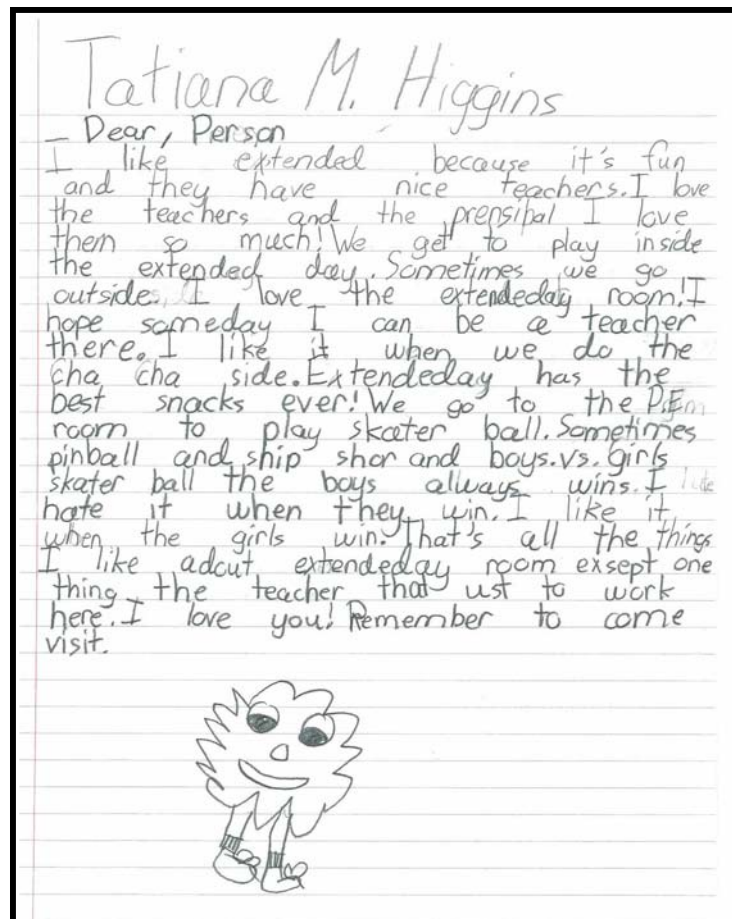 Tatiana M. Higgins
Dear, Person
I like extended because it's fun
and they have nice teachers. I love
the teachers and the prensibal I love
them so much! We get to play inside
the extended day. Sometimes we go
outside. I love the extendeday room! I
hope someday I can be a teacher
there. I like it when we do the
cha cha side. Extendeday has the
best snacks ever! We go to the P.E.
room to play skater ball. Sometimes
pinball and ship shor and boys.vs. girls
skater ball the boys always wins. I
hate it when they win. I like it
when the girls win. That's all the things
I like adcut extendeday room exsept one
thing the teacher that ust to work
here. I love you! Remember to come
visit.